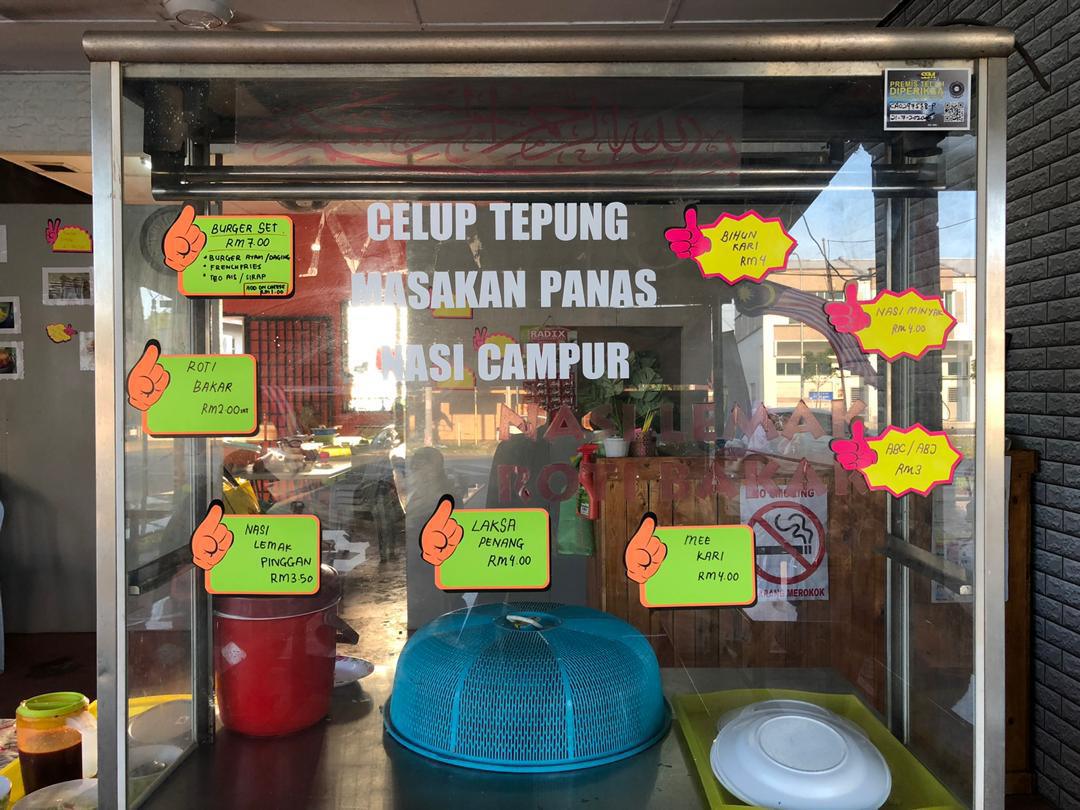 PREMIS TELAH
DIPERIKSA
CELUP TEPUNG
MASAKAN PANAS
NASI CAMPUR
BURGER SET
RM 7.00
• BURGER AYAM/DAGING
• FRENCH FRIES
• TEO AIS / SIRAP
ADD ON CHEESE
RM 1.00
BIHUN
KARI
RM 4
NASI MINYAK
RM 4.00
ROTI
BAKAR
RM2.00
RADIX
NASI LEMAK
ROTI BAKAR
ABC/ABJ
RM3
NASI
LEMAK
PINGGAN
RM3.50
LAKSA
PENANG
RM4.00
MEE
KARI
RM4.00
NO SMOKING
DILARANG MEROKOK